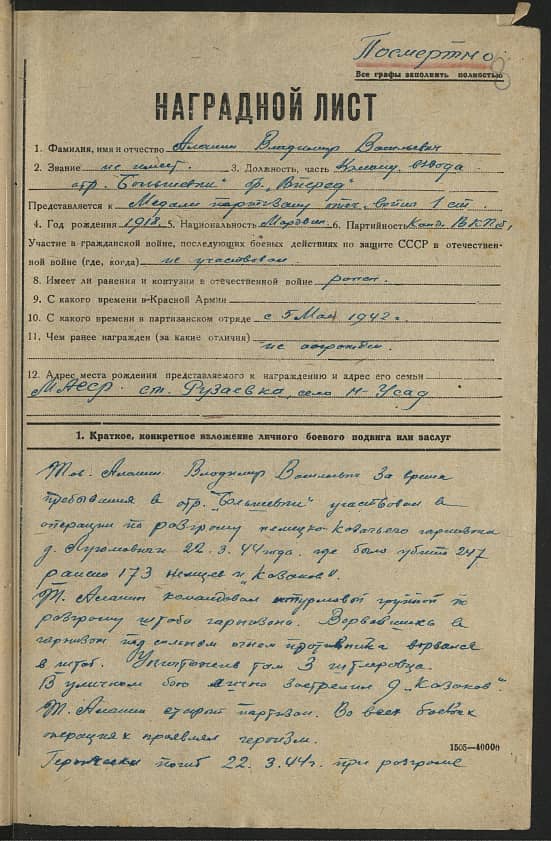 Посмертно
8
Все графы заполнить полностью
НАГРАДНОЙ ЛИСТ
1. Фамилия, имя и отчество Аланин Владимир Васильевич
2. Звание не имеет. 3. Должность, часть Команд. взвода
отр. "Большевик" бр. "Вперед"
Представляется к Медали партизану отеч. войны 1 ст.
4. Год рождения 1918. 5. Национальность Мордвин. 6. Партийность Канд. ВКПб,
Участие в гражданской войне, последующих боевых действиях по защите СССР в отечествен-
ной войне (где, когда) не участвовал
8. Имеет ли ранения и контузии в отечественной войне ранен
9. С какого времени в Красной Армии
10. С какого времени в партизанском отряде с 5 Мая 1942 г.
11. Чем ранее награжден (за какие отличия) не награжден
12. Адрес места рождения представляемого к награждению и адрес его семьи
МАССР ст. Рузаевка, село Н-Усад
1. Краткое, конкретное изложение личного боевого подвига или заслуг
Тов. Аланин Владимир Васильевич за время
пребывания в отр. "Большевик" участвовал в
операции по разгрому немецко-казачьего гарнизона
д. 22.3.44 года. где было убито 247
ранено 173 немцев и "казаков".
Т. Аланин командовал штурмовой группой по
разгрому штаба гарнизона. Ворвавшись в
гарнизон под сильным огнем противника ворвался
в штаб. Уничтожив там 3 гитлеровца.
В уличном бою лично застрелил 9 "казаков".
Т. Аланин старый партизан. Во всех боевых
операциях проявлял героизм.
1505—40000
Героически погиб 22.3.44г. при разгроме